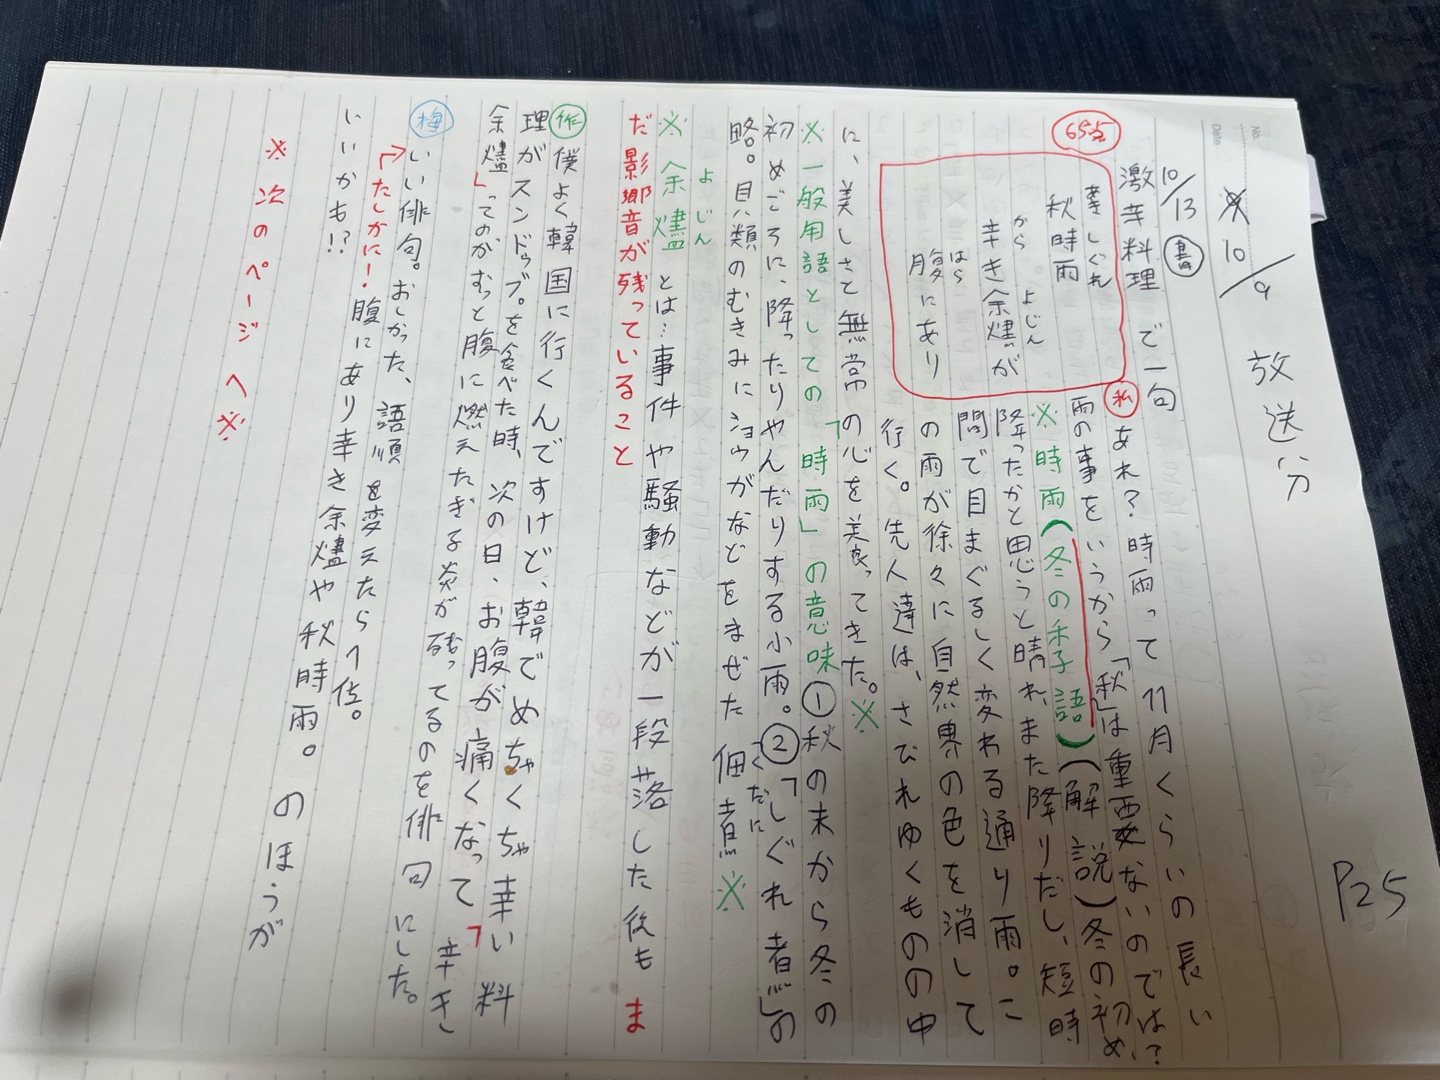 P25
※10/9 放送分
10/13 書
激辛料理で一句
65点
秋時雨
しぐれ
辛き余燼が
から よじん
腹にあり
はら
私 あれ?時雨って11月くらいの長い
雨の事をいうから「秋」は重要ないのでは?
※時雨(冬の季語)(解説)冬の初め、
降ったかと思うと晴れ、また降りだし、短時
間で目まぐるしく変わる通り雨。こ
の雨が徐々に自然界の色を消して
行く。先人達は、さびれゆくものの中
に、美しさと無常の心を美表ってきた。※
※一般用語としての「時雨」の意味①秋の末から冬の
初めごろに、降ったりやんだりする小雨。②「しぐれ煮」の
略。貝類のむきみにショウがなどをまぜた佃煮※
つくだに
※余燼とは…事件や騒動などが一段落した後も ま
よじん
だ影響が残っていること
作 僕よく韓国に行くんですけど、韓でめちゃくちゃ辛い料
理がスンドゥブ。を食べた時、次の日、お腹が痛くなって「辛き
余燼」ってのがむっと腹に燃えたぎる炎が残ってるのを俳句にした。
梅 いい俳句。おしかった、語順を変えたら1位。
たしかに! 腹にあり辛き余燼や秋時雨。のほうが
いいかも!?
※次のページへ※